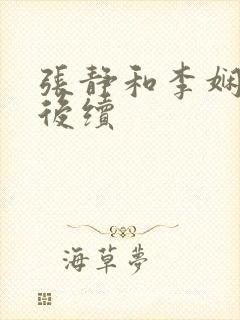 張靜和李娴
後續
海草夢